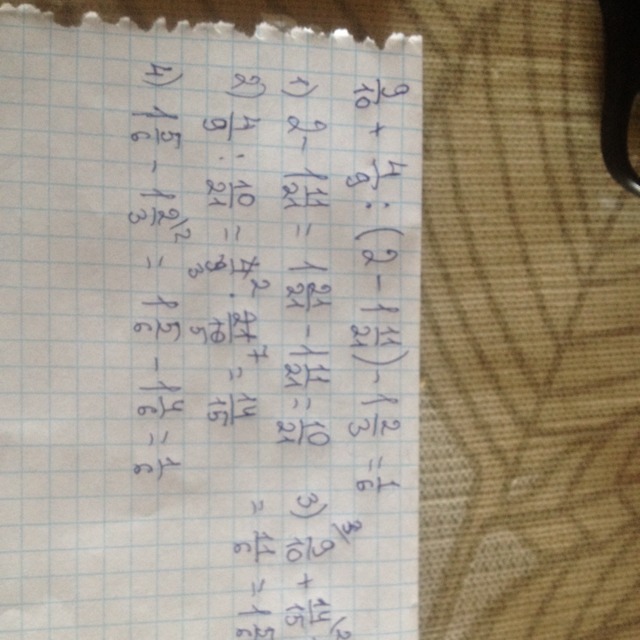 9/10 + 4/9 : (2 - 1 11/21) - 1 2/3 = 1/6
1) 2 - 1 11/21 = 1 21/21 - 1 11/21 = 10/21
2) 4/9 : 10/21 = 4/9 · 21/10 = 14/15
3) 9/10 + 14/15
= 11/6 = 1 5/6
4) 1 5/6 - 1 2/3 = 1 5/6 - 1 4/6 = 1/6